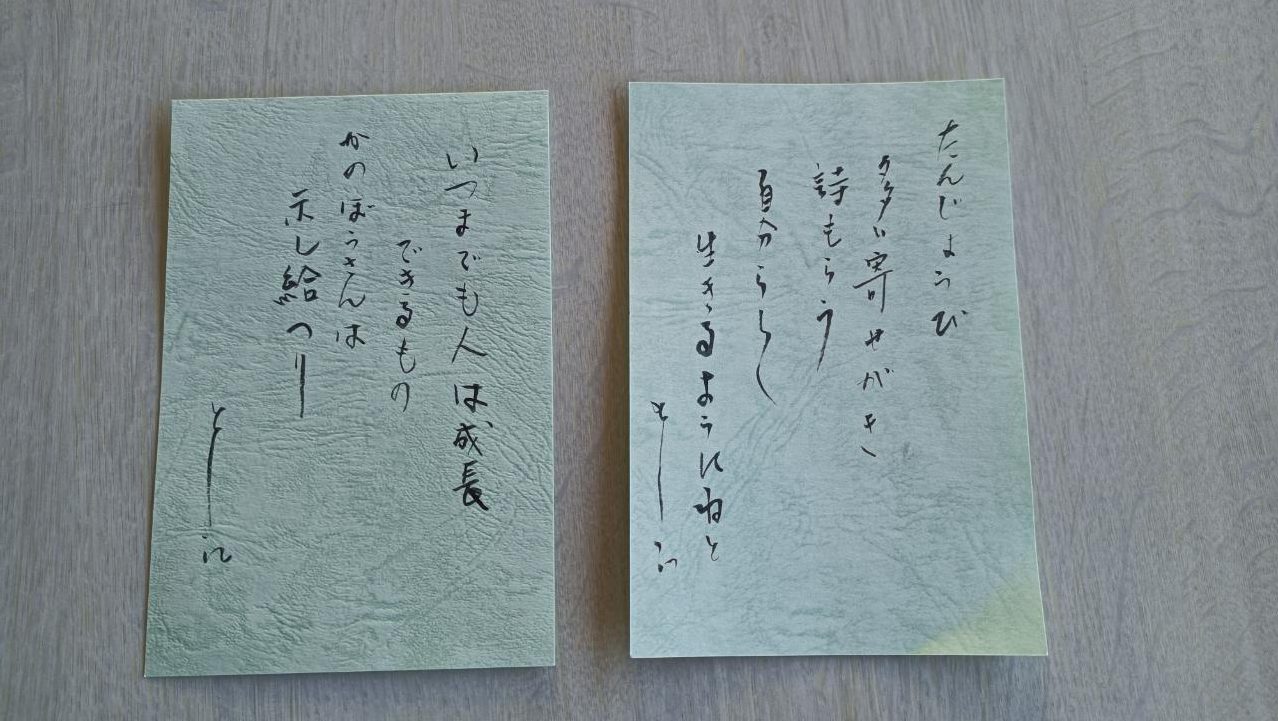 たんじょうび
寄せがき
詩もらう
自分らしく
生きるようにねと
いつまでも人は成長
できるもの
かのぼうさんは
示し給へり